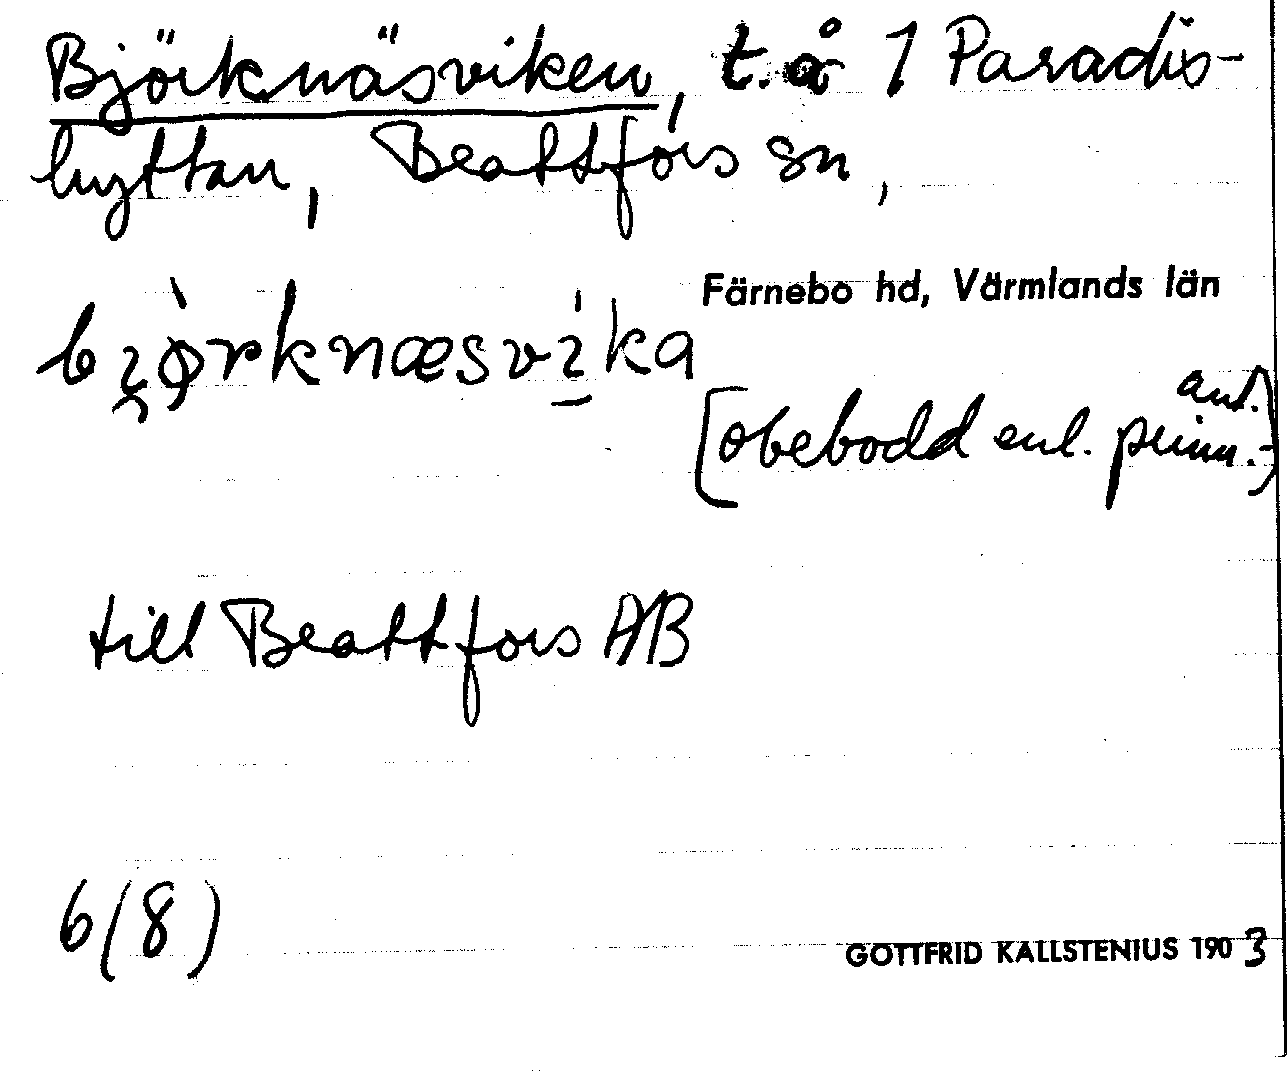 Björknäsviken, t. å 1 Paradis-
hyttan, Beattfors sn,
Färnebo hd, Värmlands län
bjø̀rknæsvi̱ka
[obebodd enl. prim. ant.]
till Beattfors AB
6(8)
GOTTFRID KALLSTENIUS 1903